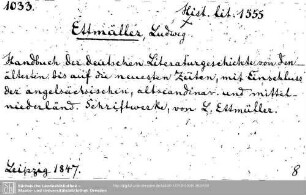 1033.
Hist. lit. 1555
Ettmüller, Ludwig
Handbuch der deutschen Literaturgeschichte von den
ältesten bis auf die neuesten Zeiten, mit Einschluss
der angelsächsischen, altscandinav. und mittel-
niederländ. Schriftwerke, von L. Ettmüller.
Leipzig 1847.
8